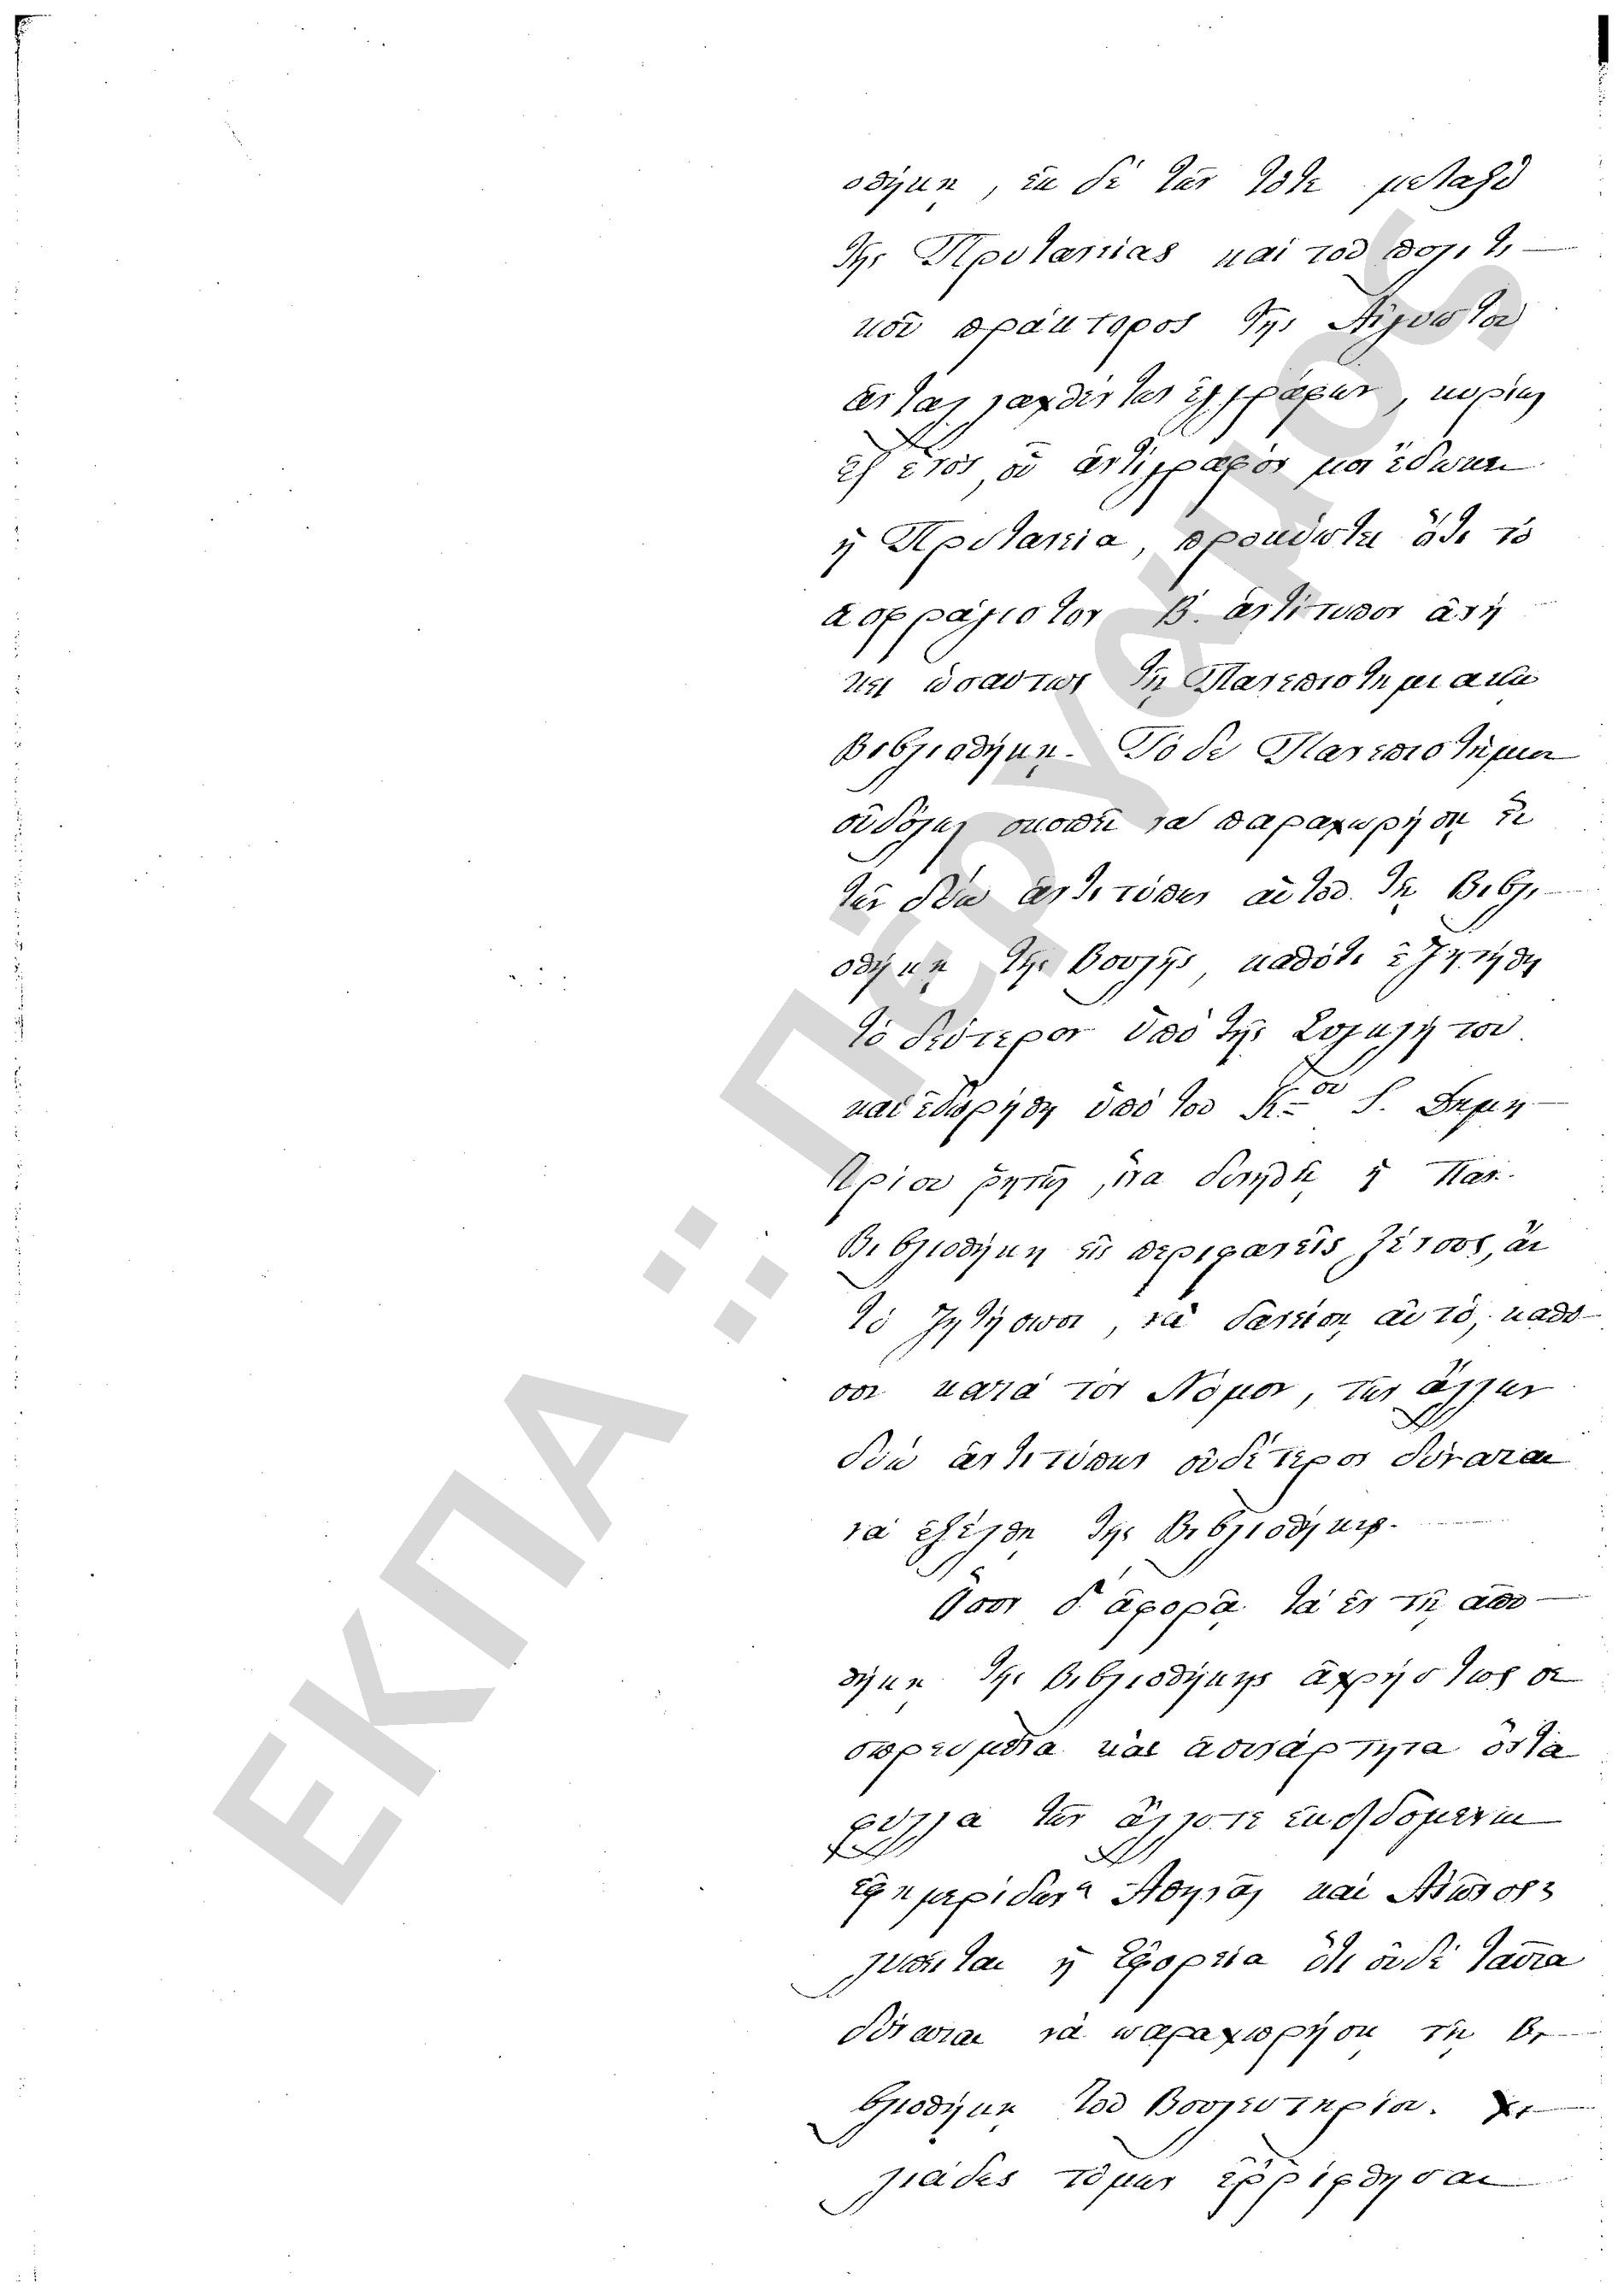 οθήκῃ, ἐκ δὲ τῶν τότε μεταξὺ
τῆς Πρυτανείας καὶ τοῦ πολιτι-
κοῦ πράκτορος τῆς Αἰγύπτου
ἀνταλλαχθέντων ἐγγράφων, κυρίως
ἐξ ἑνός, οὗ ἀντίγραφόν μοι ἔδωκεν
ἡ Πρυτανεία, προκύπτει ὅτι τὸ
ἀσφράγιστον Β. ἀντίτυπον ἀνή
κει ὡσαύτως τῇ Πανεπιστημιακῇ
Βιβλιοθήκῃ. Τὸ δὲ Πανεπιστήμιον
οὐδόλως σκοπεῖ νὰ παραχωρήσῃ ἓν
τῶν δύω ἀντιτύπων αὐτοῦ τῇ Βιβλι-
οθήκῃ τῆς Βουλῆς, καθότι ἐζητήθη
τὸ δεύτερον ὑπὸ τῆς Συγκλήτου
καὶ ἐδωρήθη ὑπὸ τοῦ Κ=ου Ι. Δημη-
τρίου ῥητῶς, ἵνα δυνηθῇ ἡ Παν.
Βιβλιοθήκη εἰς περιφανεῖς ξένους, ἂν
τὸ ζητήσωσι, νὰ δανείσῃ αὐτό, καθό-
σον κατὰ τὸν Νόμον, τῶν ἄλλων
δύω ἀντιτύπων οὐδέτερον δύναται
νὰ ἐξέλθῃ τῆς Βιβλιοθήκης.
Ὅσον δ' ἀφορᾷ τὰ ἐν τῇ ἀπο-
θήκῃ τῆς Βιβλιοθήκης ἀχρήστως σε
σωρευμένα καὶ ἀσυνάρτητα ὄντα
φύλλα τῶν ἄλλοτε ἐκδιδομένων
ἐφημερίδων Ἀθηνᾶς καὶ Αἰῶνος
λυπεῖται ἡ Ἐφορεία ὅτι οὐδὲ ταῦτα
δύναται νὰ παραχωρήσῃ τῇ Βι-
βλιοθήκῃ τοῦ Βουλευτηρίου. Χι-
λιάδες τόμων ἐῤῥίφθησαν
ΕΚΠΑ :: Πέργαμος